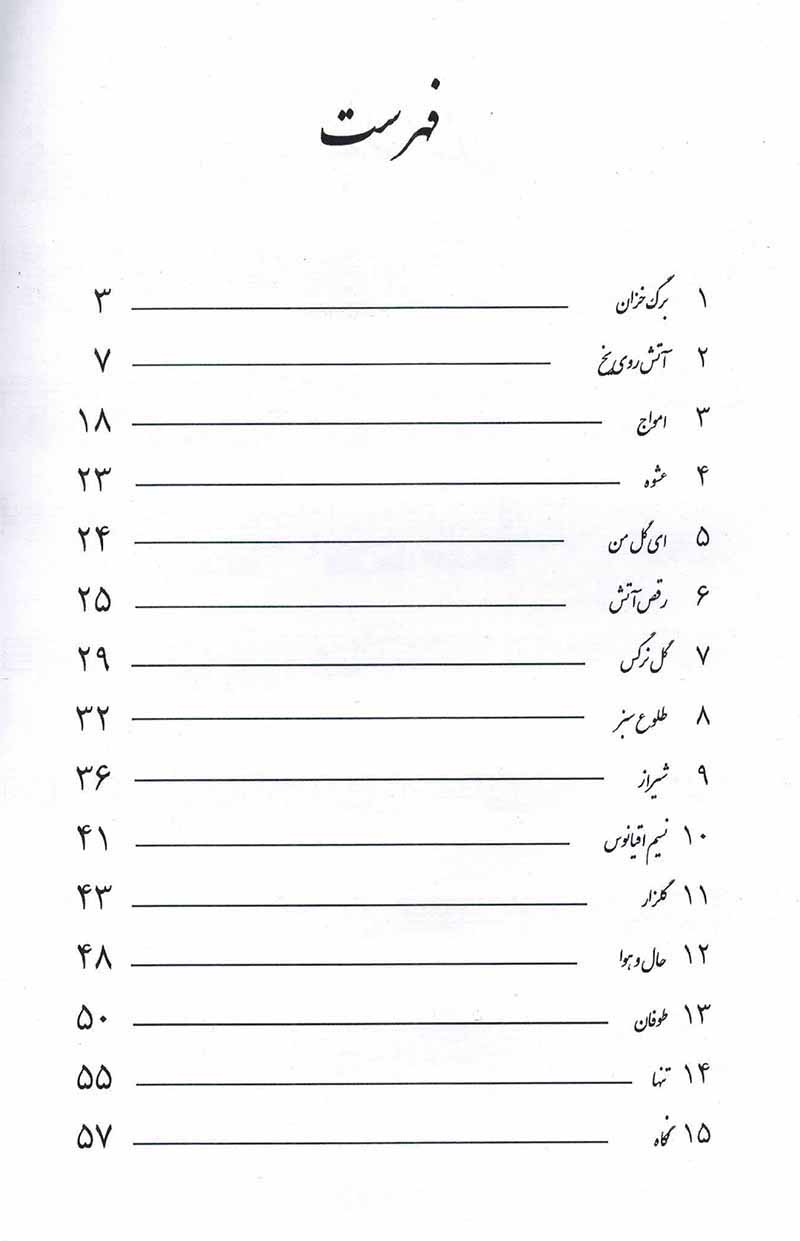 فهرست
۱ برگ خزان ۳
۲ آتش روی یخ ۷
۳ امواج ۱۸
۴ عشوه ۲۳
۵ ای گل من ۲۴
۶ رقص آتش ۲۵
۷ گل نرگس ۲۹
۸ طلوع سبز ۳۲
۹ شیراز ۳۶
۱۰ نسیم اقیانوس ۴۱
۱۱ گلزار ۴۳
۱۲ حال و هوا ۴۸
۱۳ طوفان ۵۰
۱۴ تنها ۵۵
۱۵ نگاه ۵۷